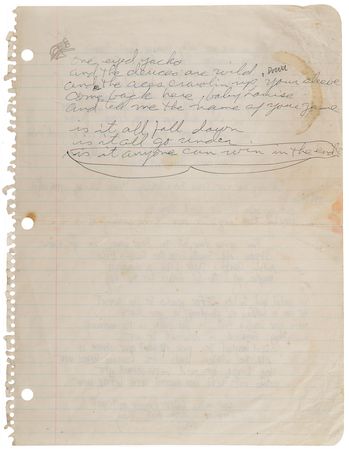 one eyed jacks
and the deuces are wild
, Down
and the aces crawling up your sleeve
Come back here, baby Louise
and tell me the name of your game
is it all fall down
is it all go under
is it anyone can win in the end